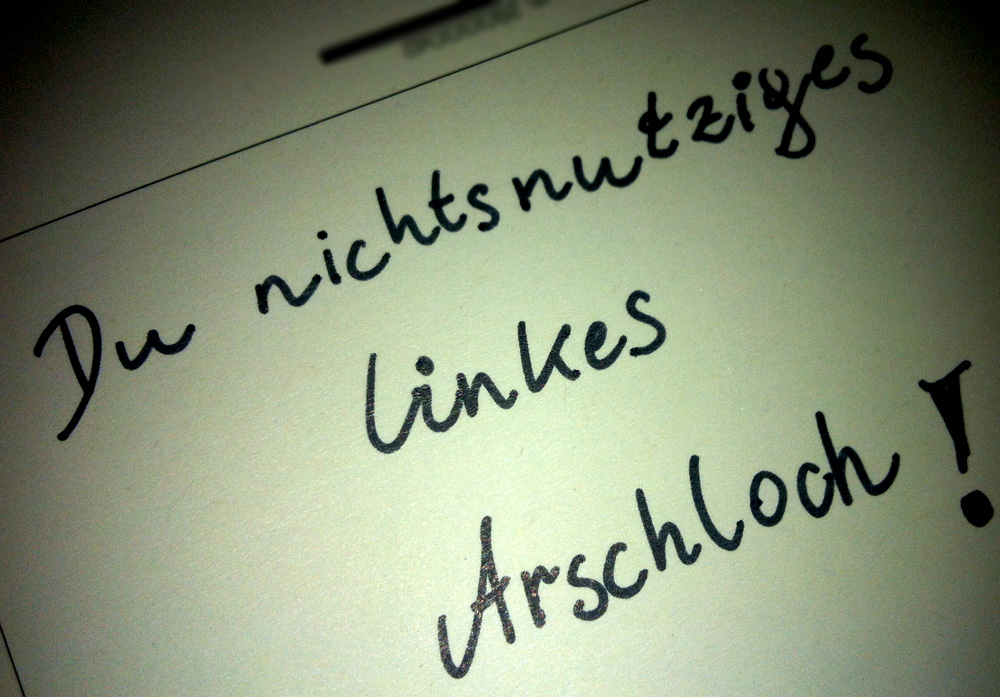 Du nichtsnutziges
linkes
Arschloch!